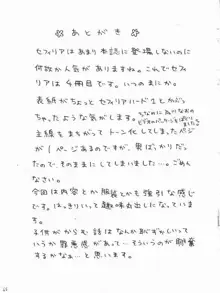 ☆ あとがき ☆
セフィリアはあまり本誌に登場しないのに
何故か人気がありますね。こんでセフィ
リアは4冊目です。いつのまにか。
表紙がちょっとセフィリアハード1とかぶっ
ちゃったような気がします。ちなみに
主線をまちがってトーン化してしまったページ
が1ページあるのですが、髪ばかりだっ
たので、そのままにしてしまいました…。ごめん
なさい。
今回は内容とか服装とかも強引な感じ
です。はっきりいって趣味丸出しになっていて。
子供がからむ話はなんか恥ずかしいって
いうか罪悪感があって…そういうのが興奮
するかなぁ…と思います。